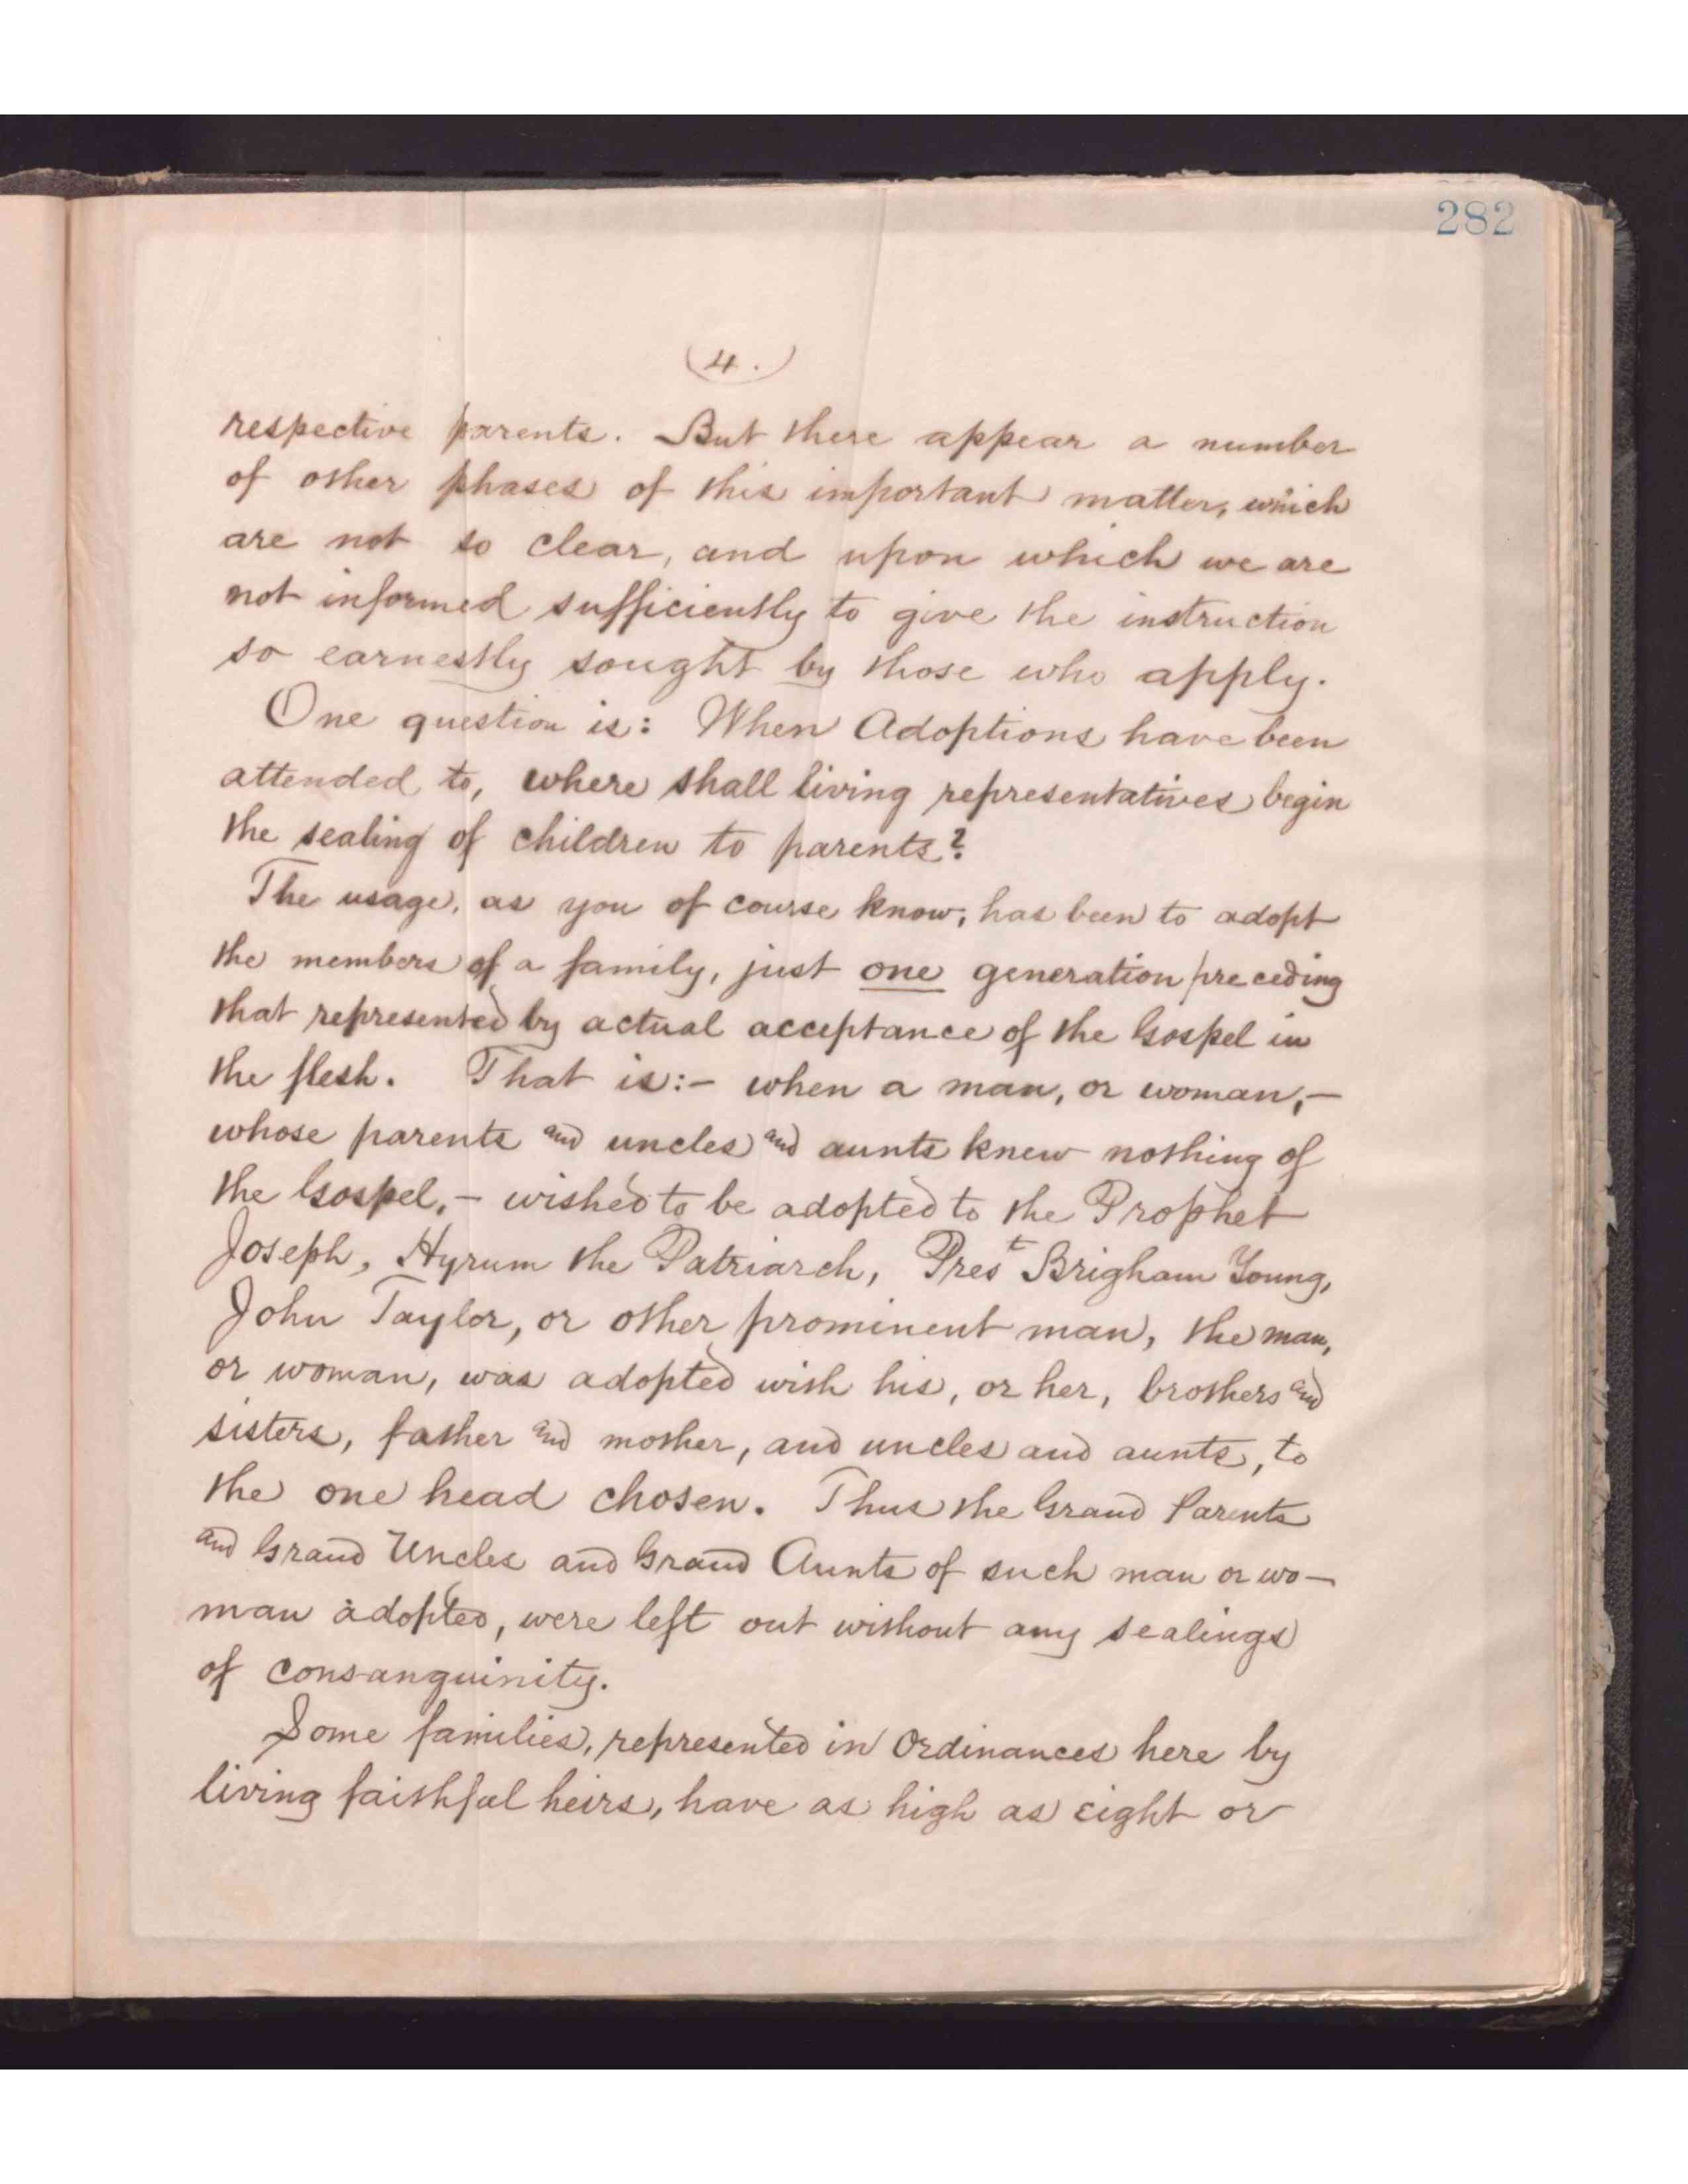 282
(4.)
respective parents. But there appear a number
of other phases of this important matter, which
are not so clear, and upon which we are
not informed sufficiently to give the instruction
so earnestly sought by those who apply.
One question is: When Adoptions have been
attended to, where shall living representatives begin
the sealing of children to parents?
The usage, as you of course know, has been to adopt
the members of a family, just one generation preceding
that represented by actual acceptance of the Gospel in
the flesh. That is:- when a man, or woman,-
whose parents and uncles and aunts knew nothing of
the Gospel,- wished to be adopted to the Prophet
Joseph, Hyrum the Patriarch, Prest Brigham Young,
John Taylor, or other prominent man, the man,
or woman, was adopted with his, or her, brothers and
sisters, father and mother, and uncles and aunts, to
the one head chosen. Thus the Grand Parents
and Grand Uncles and Grand Aunts of such man or wo-
man adopted, were left out without any sealings
of consanguinity.
Some families, represented in Ordinances here by
living faithful heirs, have as high as eight or